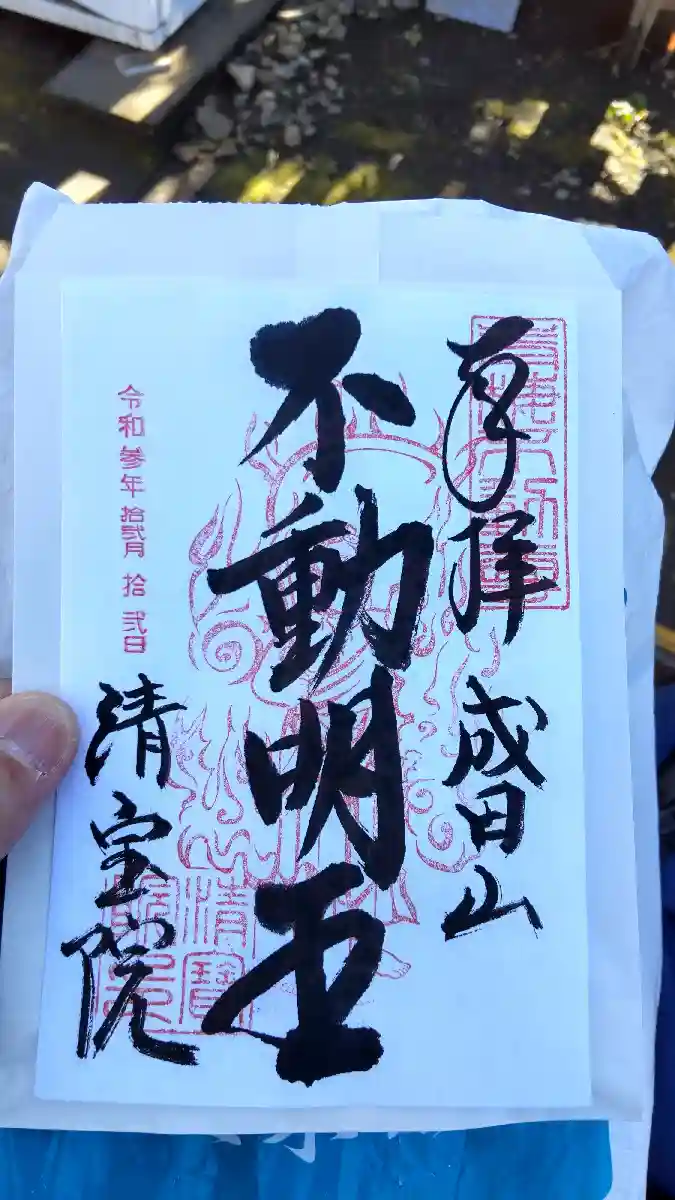 奉拝 成田山
不動明王
令和参年拾弐月拾弐日
清宝院
清寳